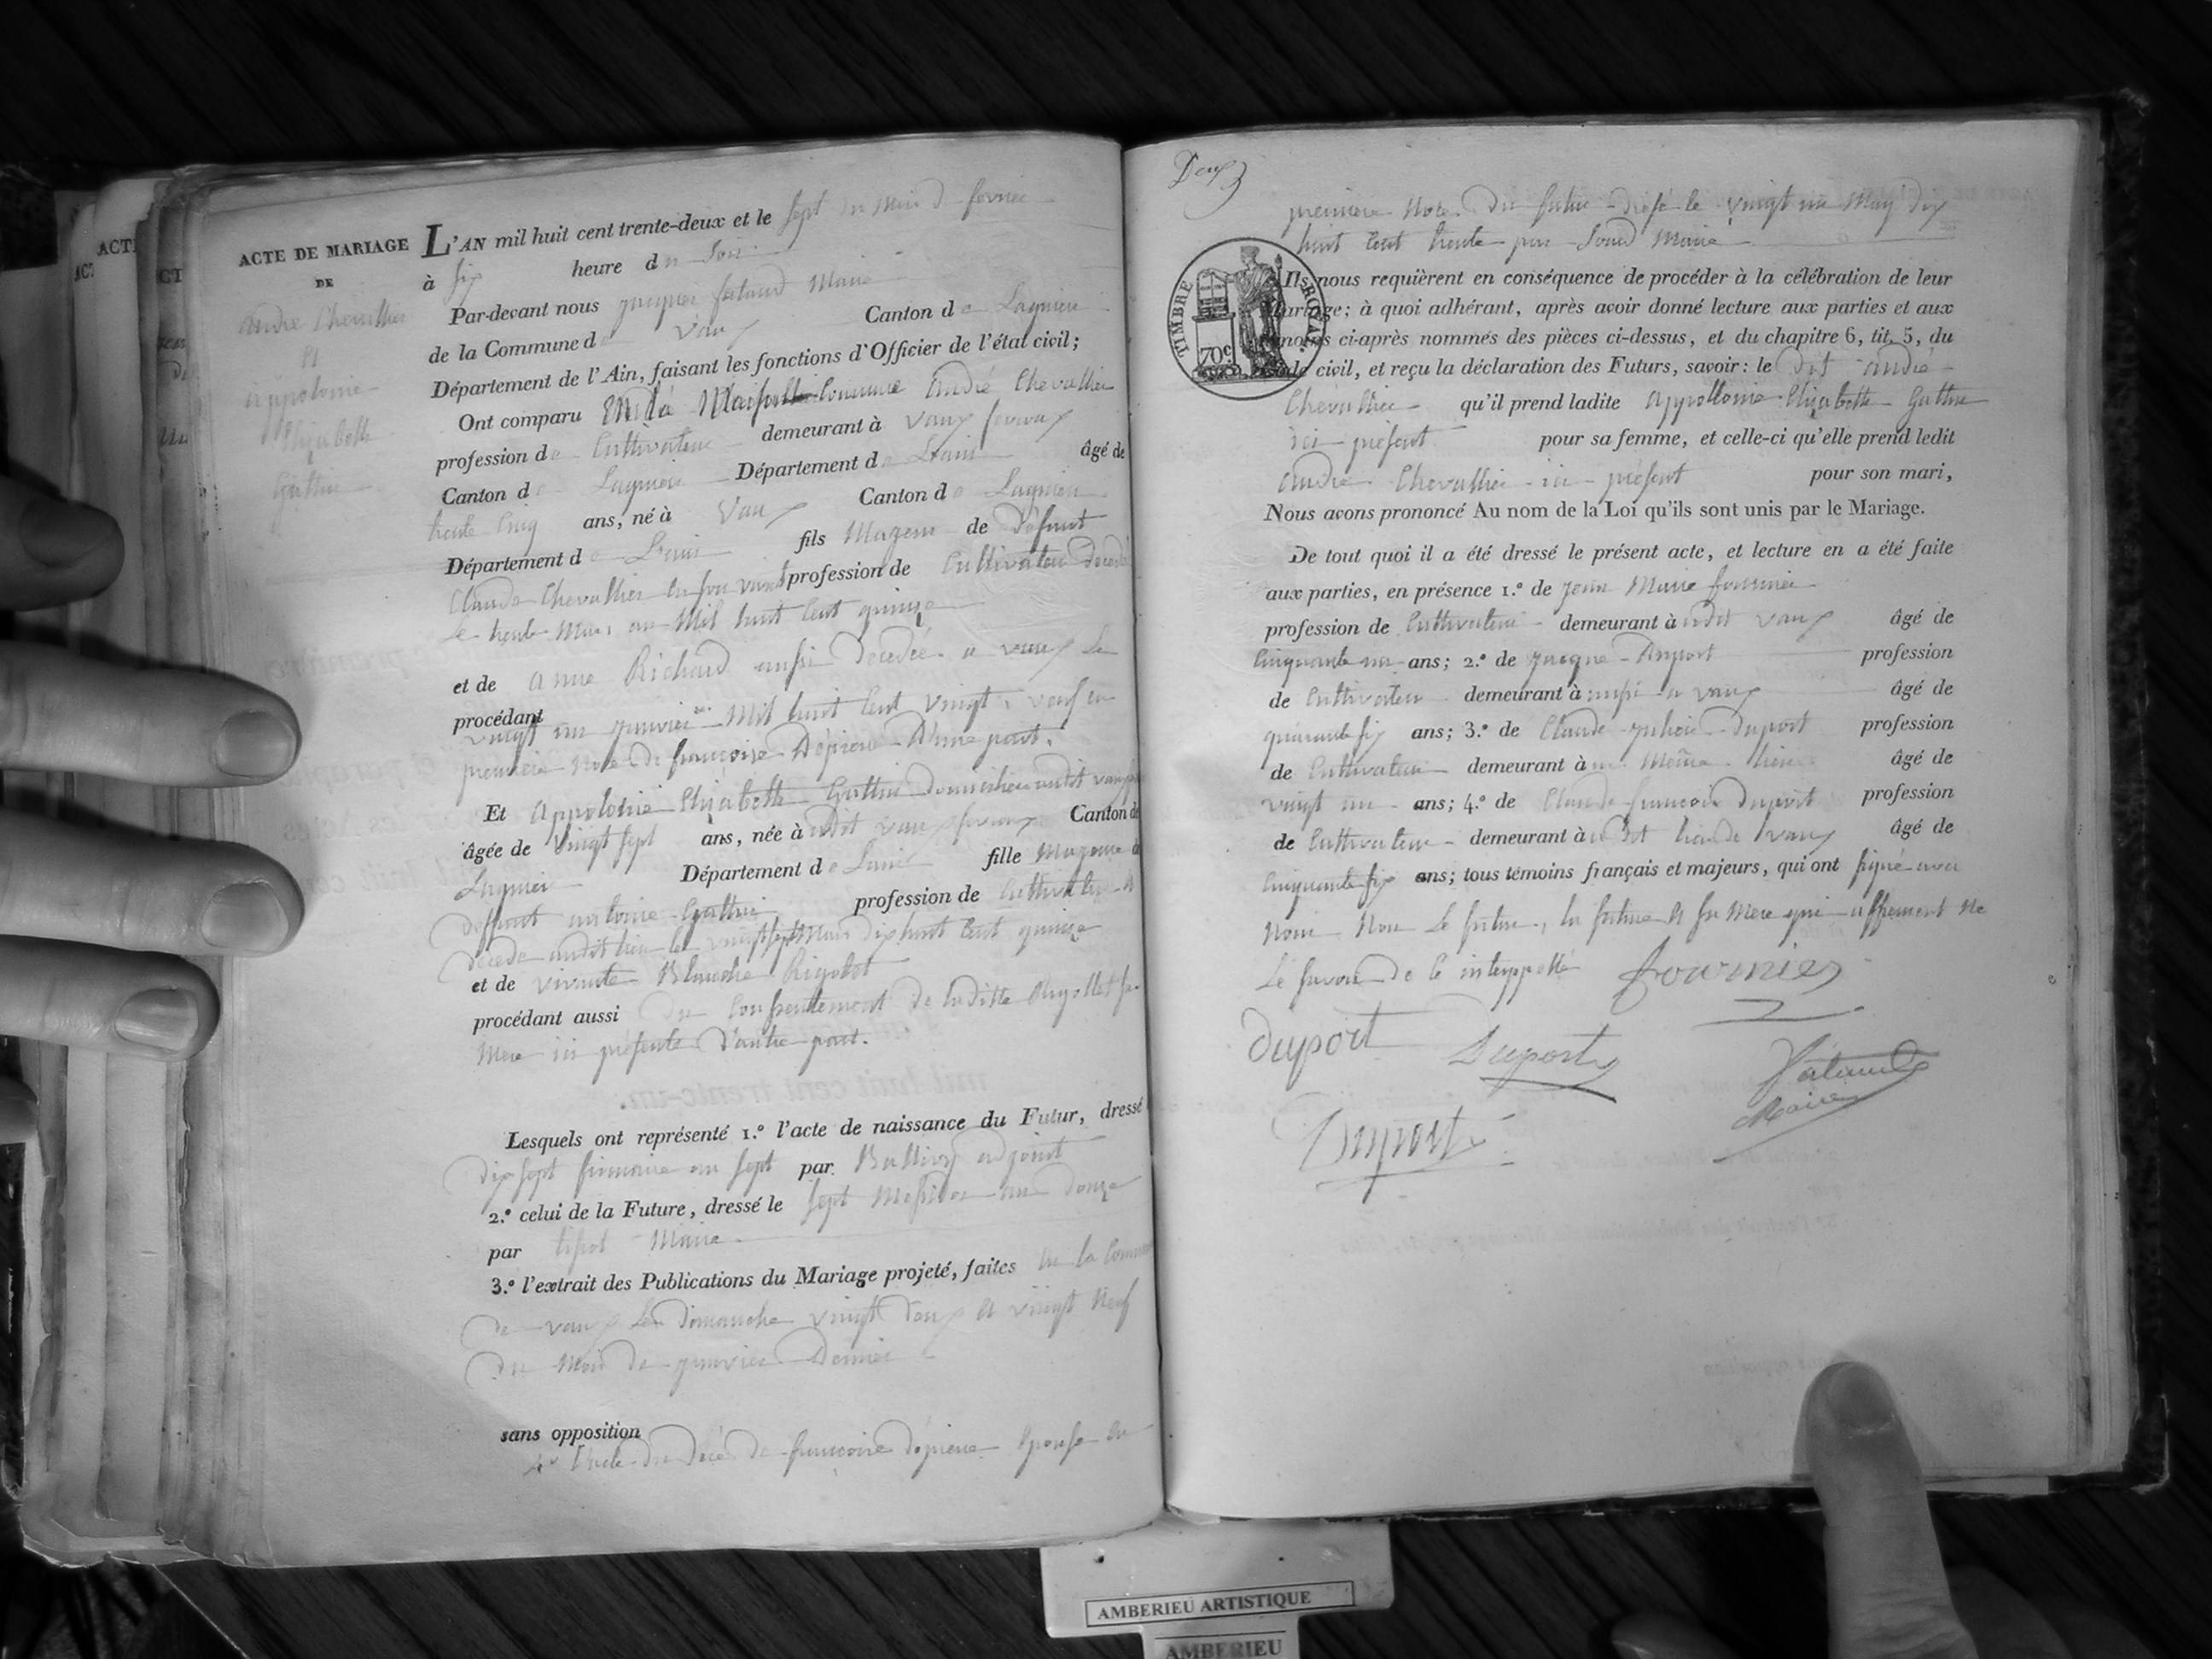 ACTE DE MARIAGE
DE
andré Chevallier
Et
appolonie
Elizabette
Guttin
L'AN mil huit cent trente-deux et le sept du mois de fevrier
à six heure du soir
Par-devant nous jacques Maire
de la Commune de Vaux Canton de Lagnieu
Département de l'Ain, faisant les fonctions d'Officier de l'état civil;
Ont comparu En la Maison Commune André Chevallier
profession de Cultivateur demeurant à Vaux
Canton de Lagnieu Département de Lain âgé de
trente Cinq ans, né à Vaux Canton de Lagnieu
Département de Lain fils Mageur de défunt
Claude Chevallier En son vivant profession de Cultivateur décédé
Le trente Mars an Mil huit Cent quinze
et de anne Richard aussi décédée a vaux Le
procédant
vingt un janvier Mil huit Cent vingt, veuf en
première Noce de françoise Dépierre D'une part.
Et Appolonie Elizabette Guttin domiciliée audit vaux
âgée de Vingt sept ans, née à udit vaux Canton de
Lagnieu Département de Lain fille Mageure de
deffunt antoine Guttin profession de Cultivateur
décédé audit lieu le vingt sept Mars dix huit Cent quinze
et de vivante Blanche Rigolet
procédant aussi du Consentement de laditte Rigollet sa
Mere ici présente D'autre part.
mil huit cent trente-un.
Lesquels ont représenté 1.º l'acte de naissance du Futur, dressé
dix sept frimaire an sept par adjoint
2.º celui de la Future, dressé le sept Messidor an douze
par Maire
3.º l'extrait des Publications du Mariage projeté, faites
de vaux Les dimanche vingt deux et vingt Neuf
du Mois de janvier Dernier
sans opposition
4º l'acte du décé de françoise dépierre Epouse En
Deux
première Noce du futur dressé le vingt un May dix
huit Cent trente par Maire
TIMBRE ROYAL.
70c
Ils nous requièrent en conséquence de procéder à la célébration de leur
Mariage; à quoi adhérant, après avoir donné lecture aux parties et aux
témoins ci-après nommés des pièces ci-dessus, et du chapitre 6, tit. 5, du
Code civil, et reçu la déclaration des Futurs, savoir: le dit andré
Chevallier qu'il prend ladite Appollonie Elizabette Guttin
ici présent pour sa femme, et celle-ci qu'elle prend ledit
andré Chevallier ici présent pour son mari,
Nous avons prononcé Au nom de la Loi qu'ils sont unis par le Mariage.
De tout quoi il a été dressé le présent acte, et lecture en a été faite
aux parties, en présence 1.º de jean Marie fournier
profession de Cultivateur demeurant à udit vaux âgé de
Cinquante un ans; 2.º de jacque Duport profession
de Cultivateur demeurant à aussi a vaux âgé de
quarante six ans; 3.º de Claude Duport profession
de Cultivateur demeurant à Même lieu âgé de
vingt un ans; 4.º de Claude françois duport profession
de Cultivateur demeurant à udit lieu de vaux âgé de
Cinquante six ans; tous témoins français et majeurs, qui ont signé avec
Nous Non Le futur, la future et sa Mere qui affirment Ne
Le savoir de Ce interppellé fournier
Duport Duport
maire
Duport
AMBERIEU ARTISTIQUE
AMBERIEU